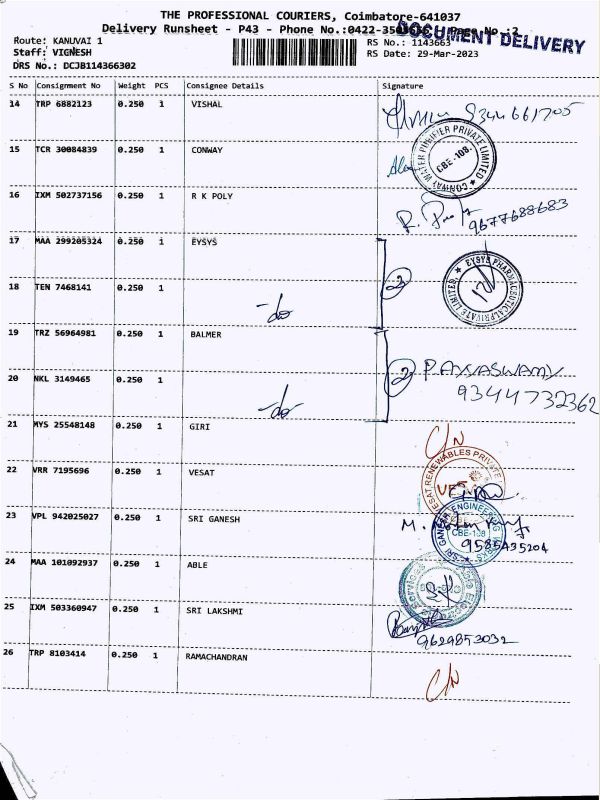 THE PROFESSIONAL COURIERS, Coimbatore-641037
Delivery Runsheet - P43 - Phone No.:0422-350 Page No.:2
DOCUMENT DELIVERY
Route: KANUVAI 1
RS No.: 1143663
Staff: VIGNESH
RS Date: 29-Mar-2023
DRS No.: DCJB114366302
S No Consignment No Weight PCS Consignee Details Signature
14 TRP 6882123 0.250 1 VISHAL 9344661705
15 TCR 30084839 0.250 1 CONWAY
CONWAY WATER PURIFIER PRIVATE LIMITED
CBE-108.
16 IXM 502737156 0.250 1 R K POLY
9677688683
17 MAA 299205324 0.250 1 EYSYS
EYSYS PHARMACEUTICAL PRIVATE LIMITED
18 TEN 7468141 0.250 1 -do 2
19 TRZ 56964981 0.250 1 BALMER
20 NKL 3149465 0.250 1 -do 2 P. AYYASWAMY
9344732362
21 MYS 25548148 0.250 1 GIRI C/N
22 VRR 7195696 0.250 1 VESAT
VESAT RENEWABLES PRIVATE
23 VPL 942025027 0.250 1 SRI GANESH
SRI GANESH ENGINEERING WORKS
CBE-108
9585435204
24 MAA 101092937 0.250 1 ABLE
Services
25 IXM 503360947 0.250 1 SRI LAKSHMI
9629853032
26 TRP 8103414 0.250 1 RAMACHANDRAN C/N